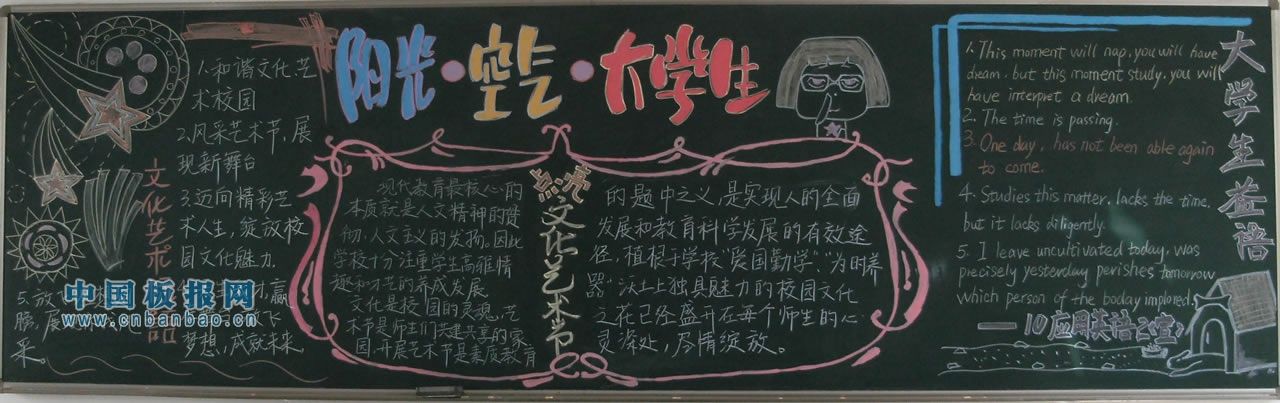 阳光·空气·大学生
1.和谐文化,艺
术校园
2.风采艺术节,展
现新舞台
3.迈向精彩艺
术人生,绽放校
园文化魅力.
赢
梦想,成就未来.
5.放
胸,展
采。
文化艺术
中国板报网
www.cnbanbao.cn
点亮文化艺术节
现代教育最核心的
本质就是人文精神的贯
彻,人文主义的发扬。因此
学校十分注重学生高雅情
趣和才艺的养成发展.
文化是校园的灵魂,艺
术节是师生们共建共享的家
园.开展艺术节是素质教育
的题中之义,是实现人的全面
发展和教育科学发展的有效途
径,植根于学校"爱国勤学"为时养
器"沃土上独具魅力的校园文化
之花已经盛开在每个师生的心
灵深处,尽情绽放。
大学生益语
1. This moment will nap, you will have
dream. but this moment study, you will
have interpret a dream.
2. The time is passing.
3. One day, has not been able again
to come.
4. Studies this matter, lacks the time,
but it lacks diligently.
5. I leave uncultivated today, was
precisely yesterday perishes tomorrow
which person of the boday implored.
——10应用英语2(堂)